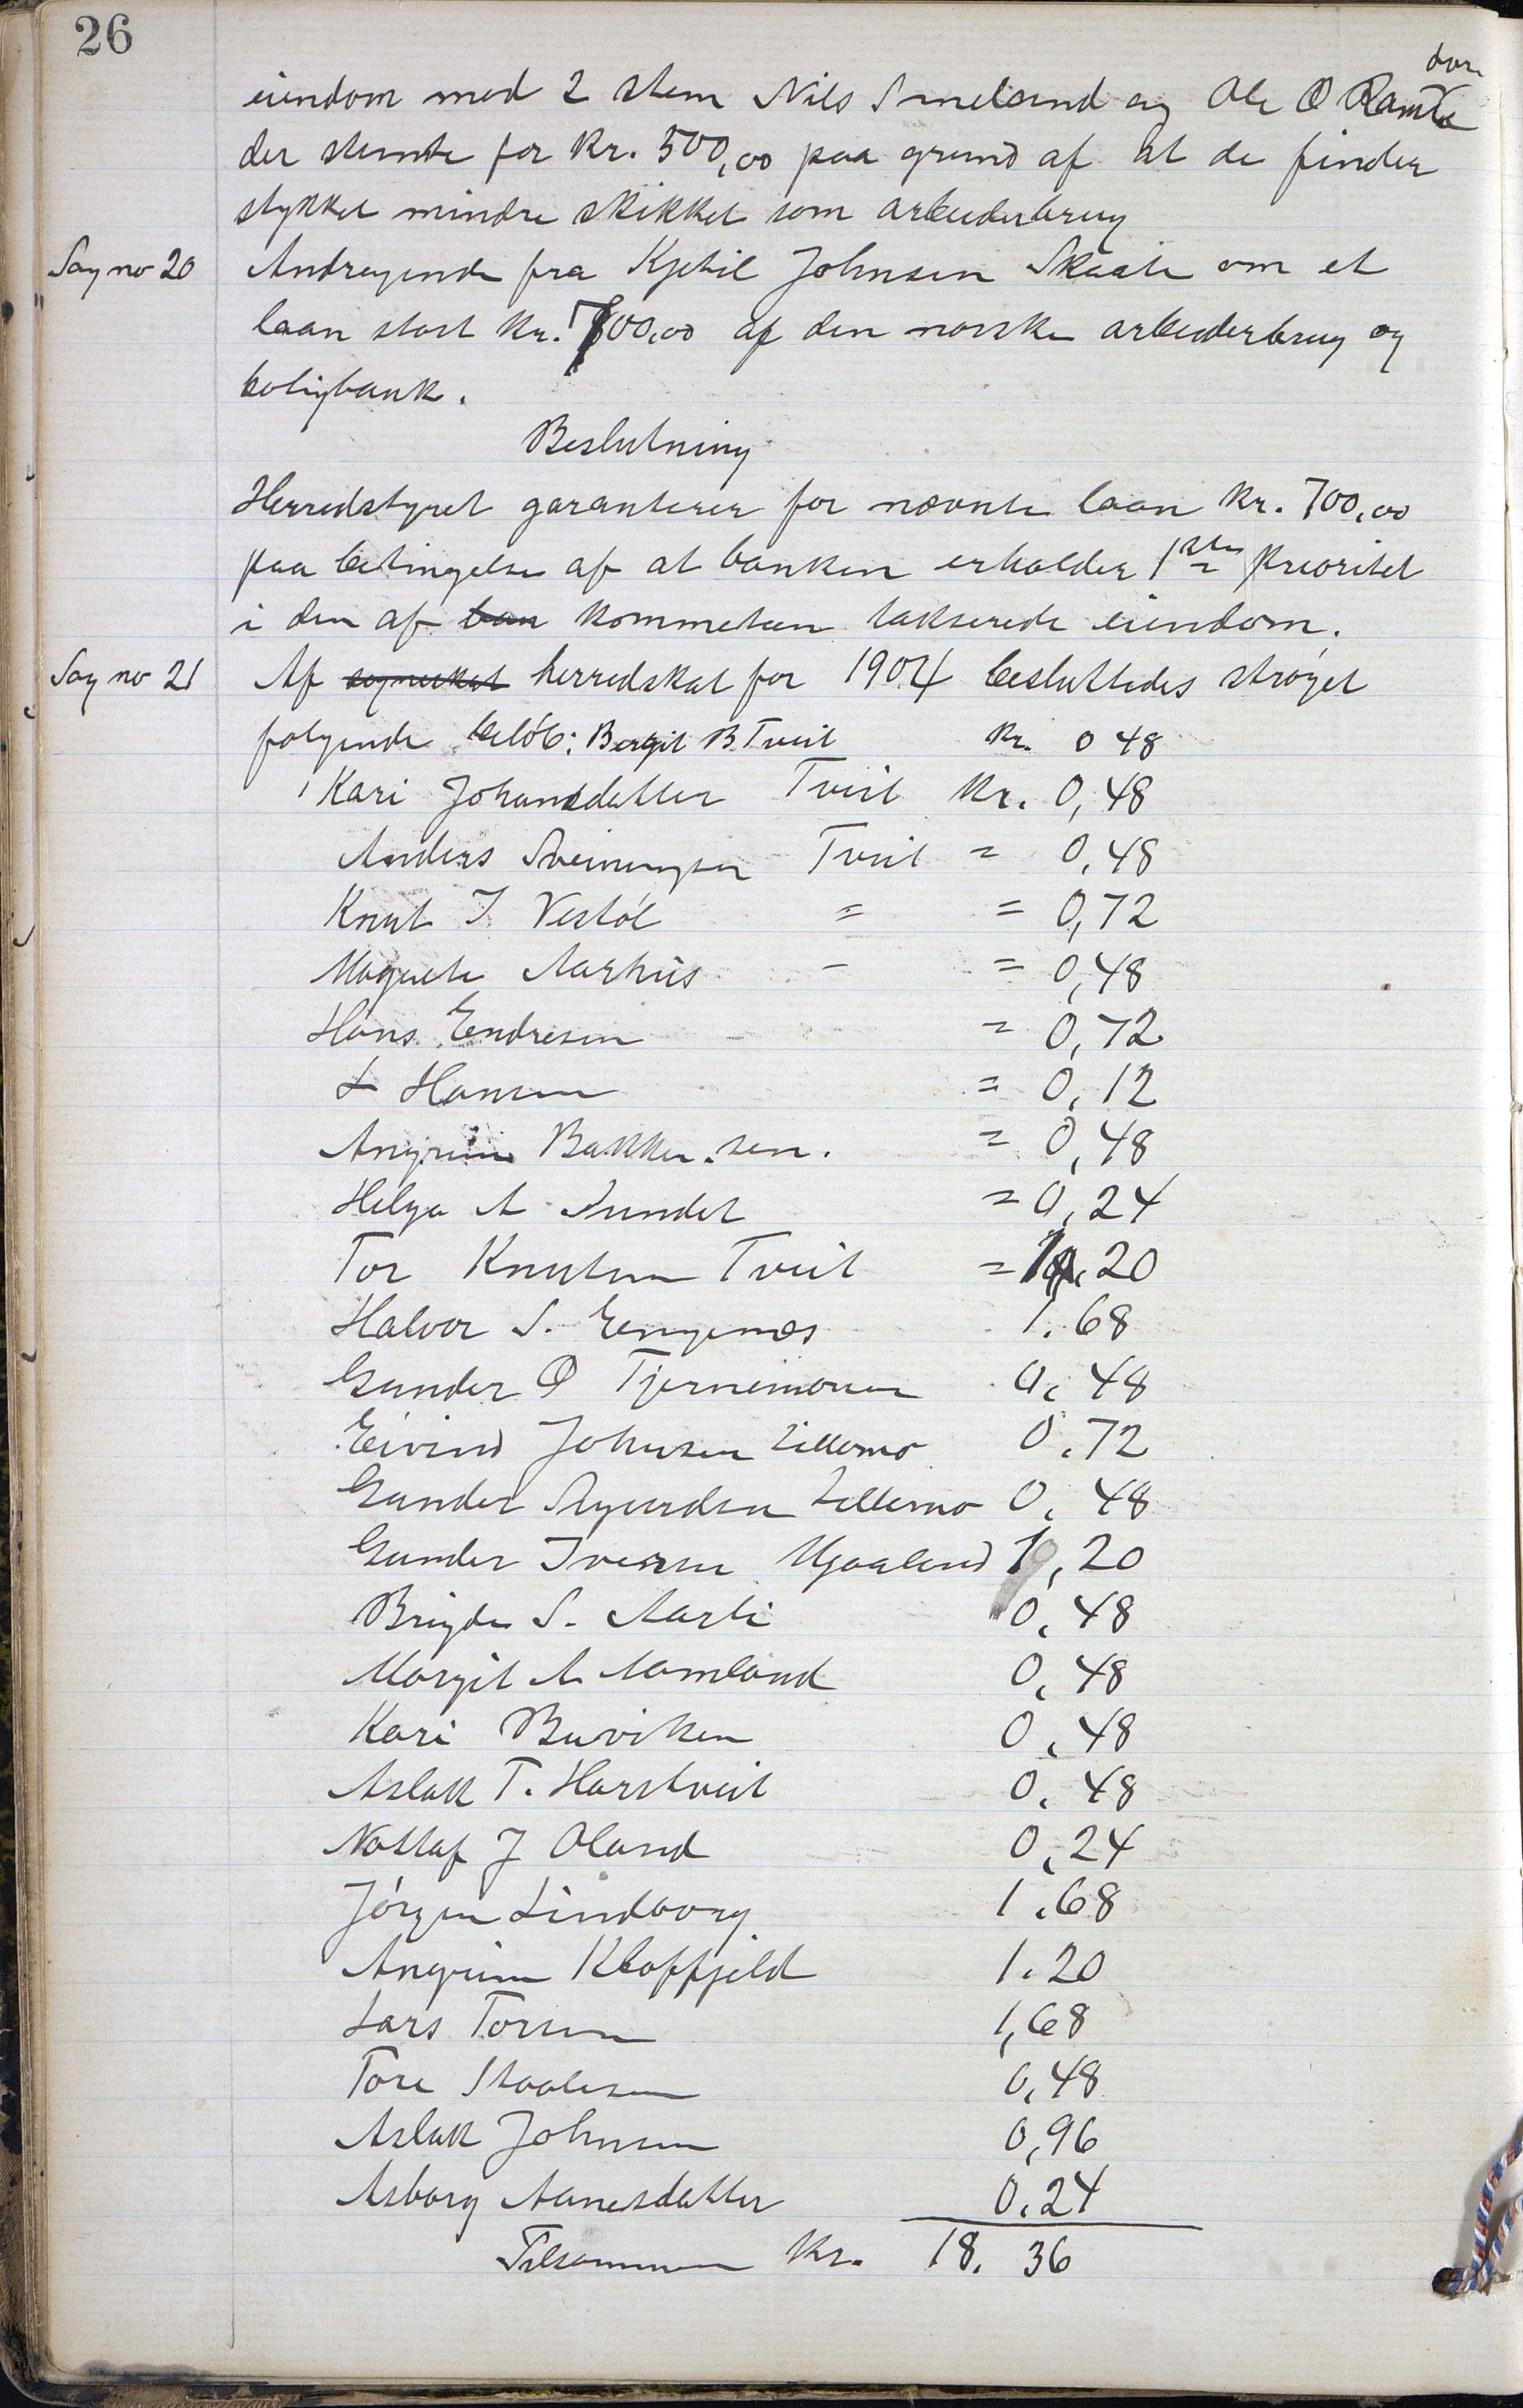 26
eiendom med 2 stem Nils Smeland og Ole O Ramse
der stemte for Kr. 500,00 paa grund af at de finder
stykket mindre skikket som arbeiderbrug
Sag no 20 Andragende fra Kjetil Johnsen Skaale om et
laan stort Kr. 700,00 af den norske arbeiderbrug og
boligbank.
Beslutning
Herredstyret garanterer for nævnte laan Kr. 700,00
paa betingelse af at banken erholder 1ste prioritet
i den af ban kommeteen takserede eiendom.
Sag no 21 Af herredskat for 1904 besluttedes strøget
følgende beløb: Bergit B Tveit Kr. 0 48
Kari Johansdatter Tveit Kr. 0,48
Anders Sveinungsen Tveit = 0,48
Knut J Vestøl = = 0,72
Magnete Aarhus - = 0,48
Hans Endresen - = 0,72
L Hansen = 0,12
Angrim Bakken sen. = 0,48
Helga A Sundet = 0,24
Tor Knutsen Tveit = 1,20
Halvor S. Engenæs 1.68
Gunder O Tjernemoen 0,48
Eivind Johnsen Lillemo 0.72
Gunder Sigurdsen Lillemo 0,48
Gunder Iversen Mjaaland 1,20
Brigde S. Aasli 0,48
Margit A Aamland 0,48
Kari Buviken 0,48
Aslak T. Harstveit 0,48
Notlaf J Oland 0,24
Jörgen Lindborg 1.68
Angrim Kloppfjeld 1.20
Lars Torsen 1,68
Tore Staalesen 0,48
Aslak Johnsen 0,96
Asborg Aanesdatter 0.24
Tilsammen Kr. 18.36